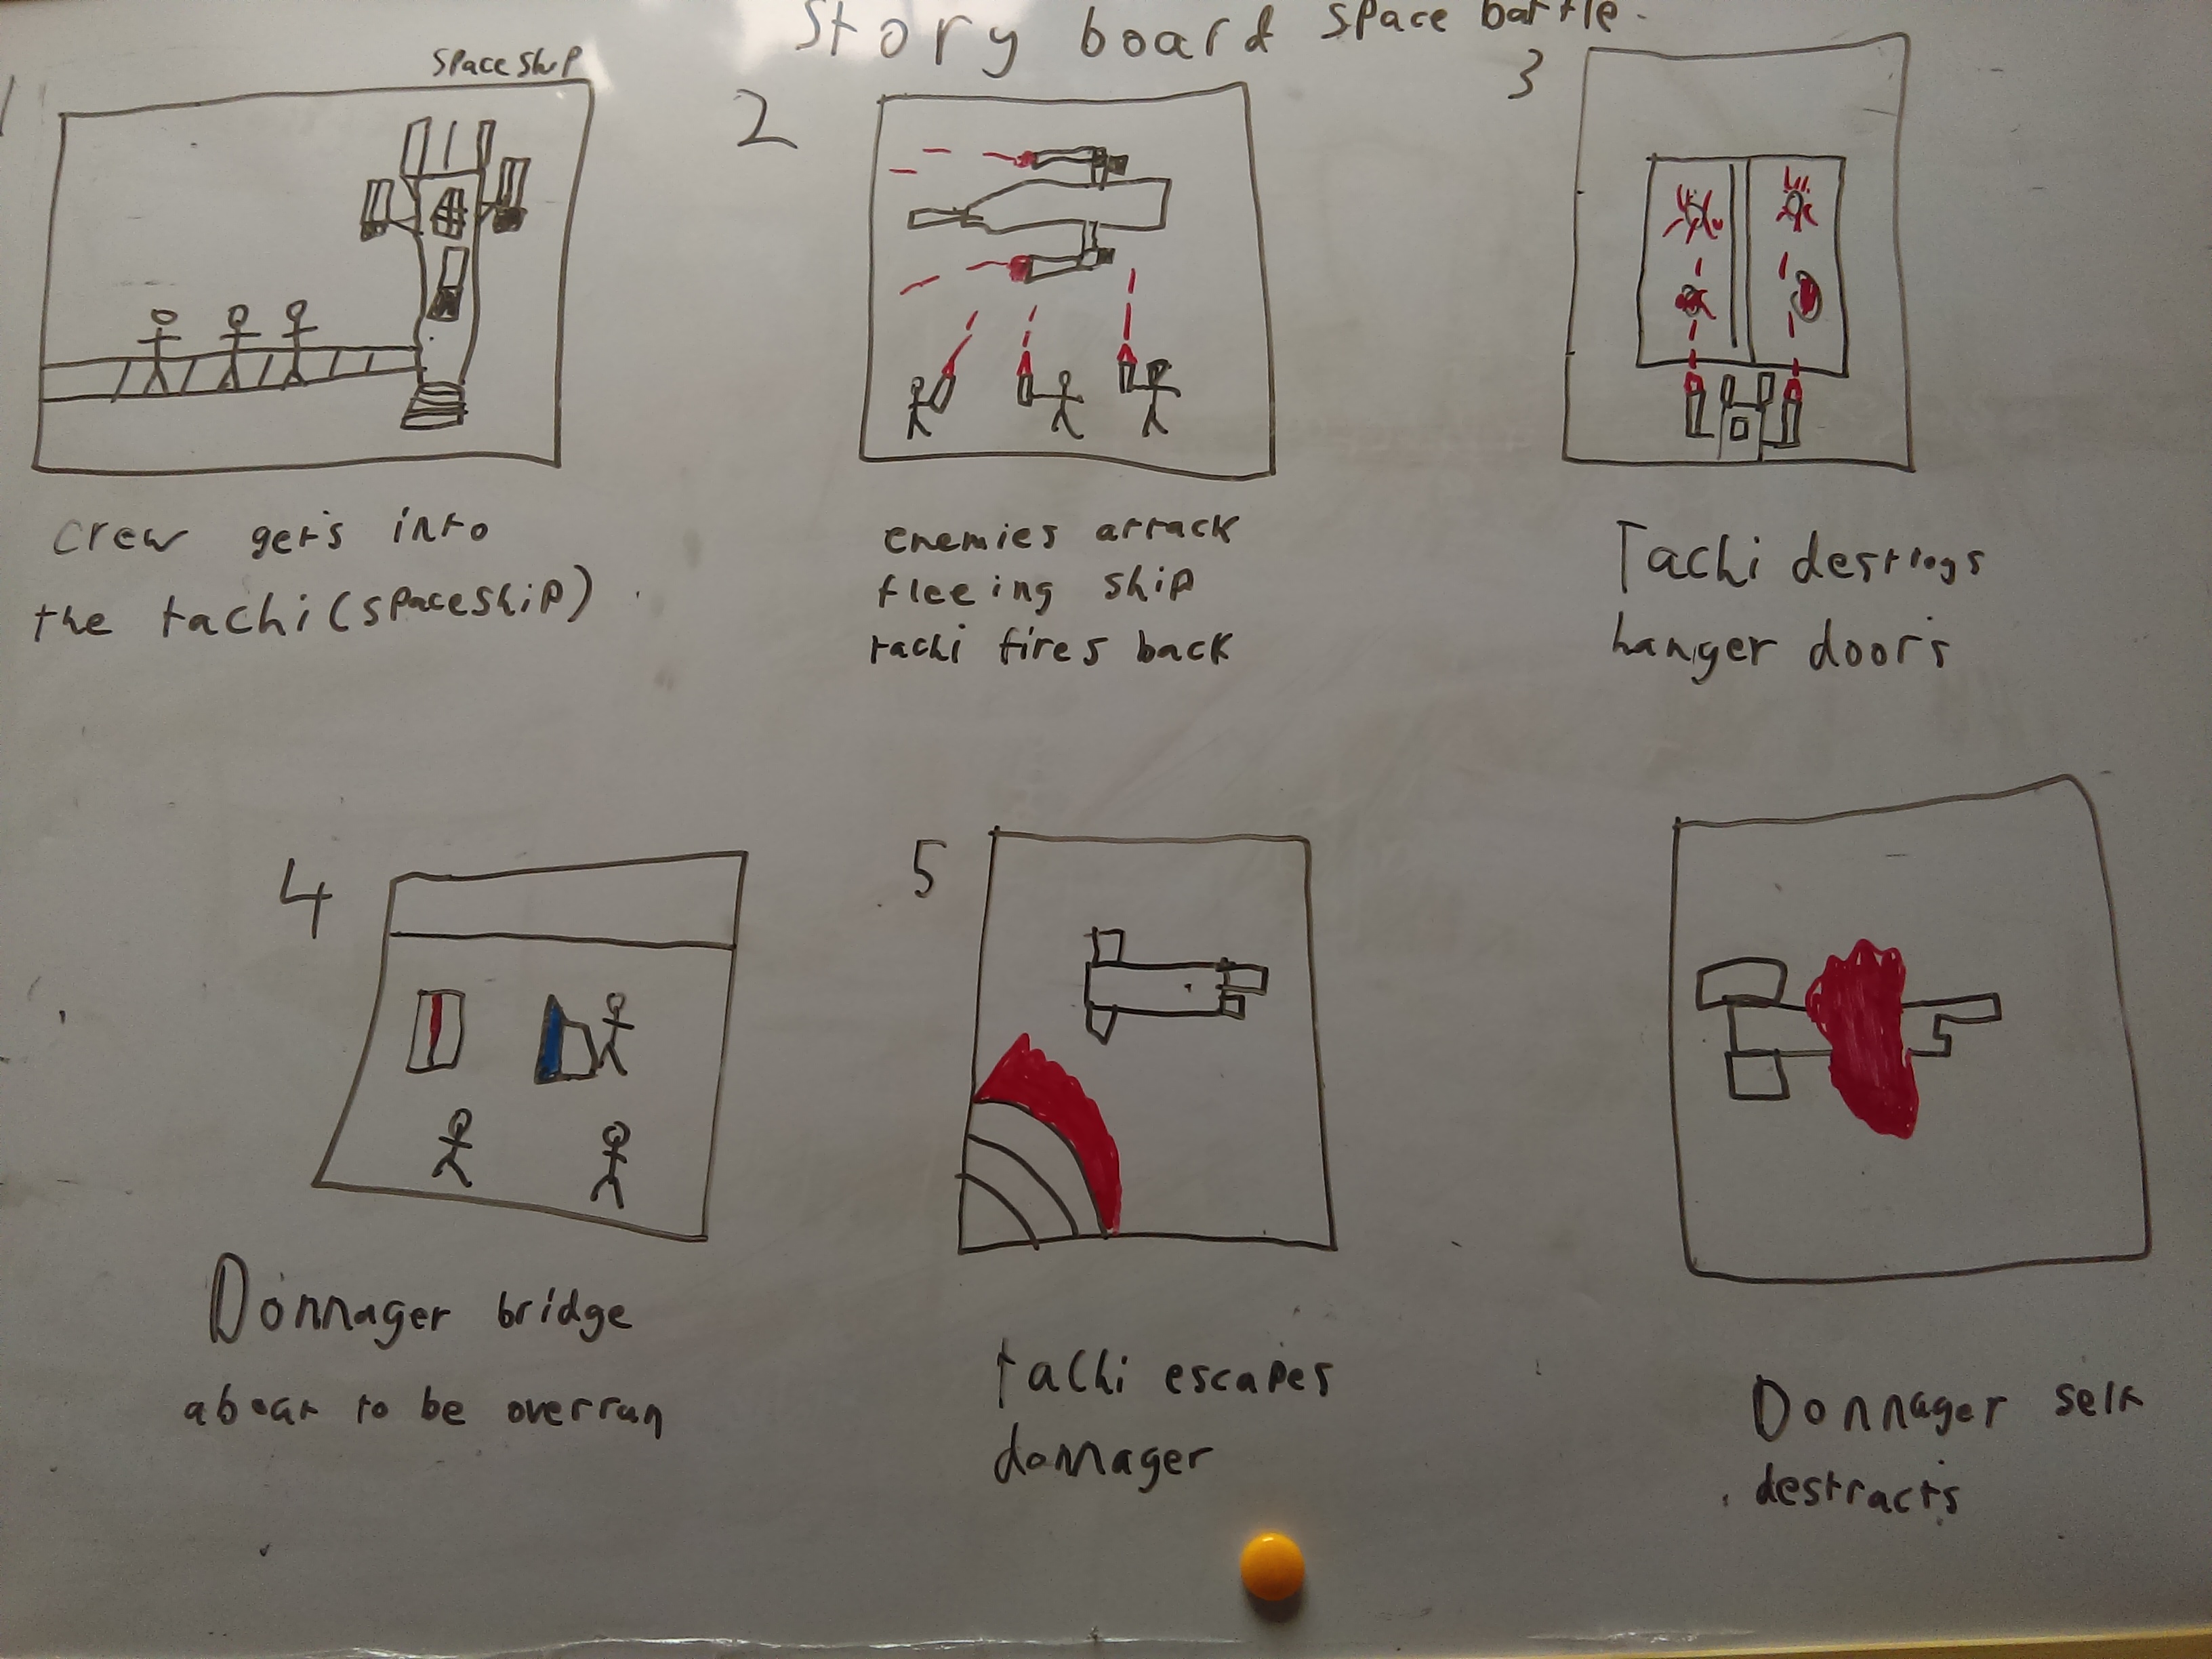 Story board space battle.
1
spaceship
crew gets into
the tachi (spaceship)
2
enemies attack
fleeing ship
tachi fires back
3
Tachi destroys
hanger doors
4
Donnager bridge
about to be overrun
5
tachi escapes
donnager
Donnager self
destructs